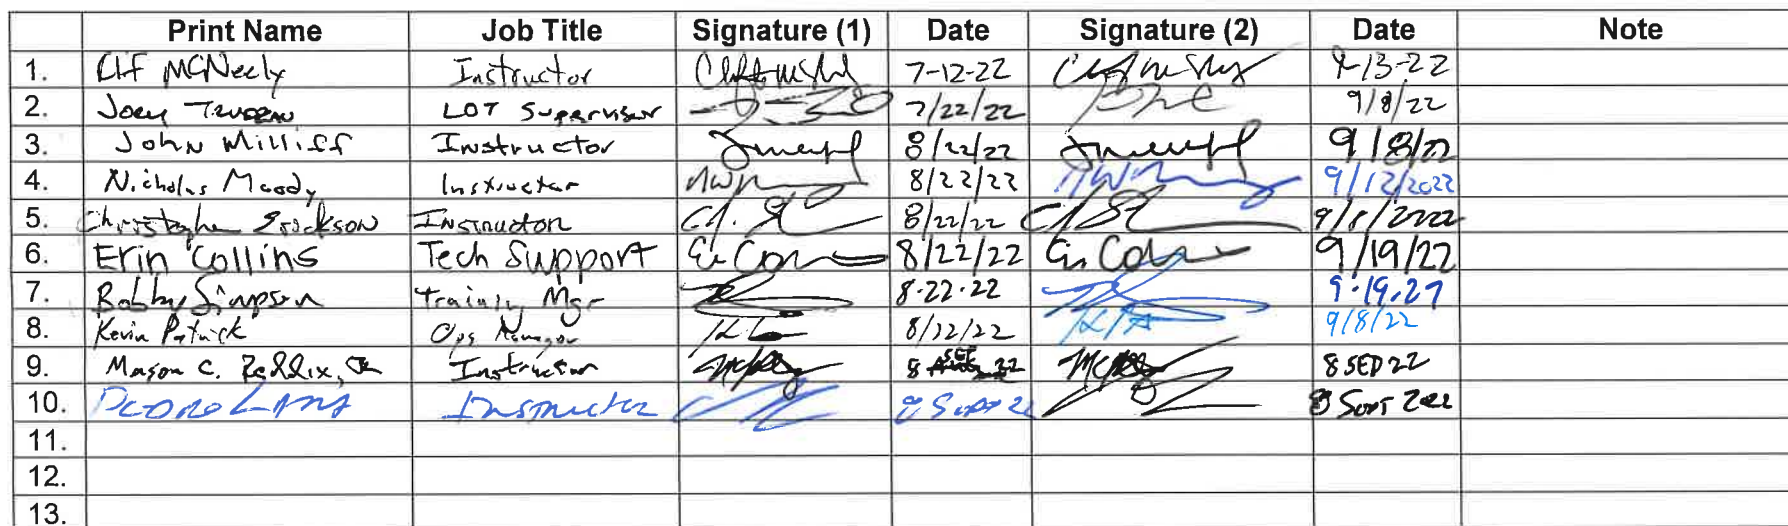 Print Name Job Title Signature (1) Date Signature (2) Date Note
1. Clif McNeely Instructor 7-12-22 9-13-22
2. Joey LOT Supervisor 7/22/22 9/8/22
3. John Milliff Instructor 8/22/22 9/8/22
4. Nicholas Moody Instructor 8/22/22 9/12/2022
5. Christopher Erickson Instructor 8/22/22 9/8/2022
6. Erin Collins Tech Support 8/22/22 9/19/22
7. Bobby Simpson Training Mgr 8-22-22 9-19-22
8. Kevin Patrick Ops Manager 8/22/22 9/8/22
9. Mason C. Instructor 8 SEP 22 8 SEP 22
10. Pedro Instructor 8 Sept 22 8 Sept 2022
11.
12.
13.